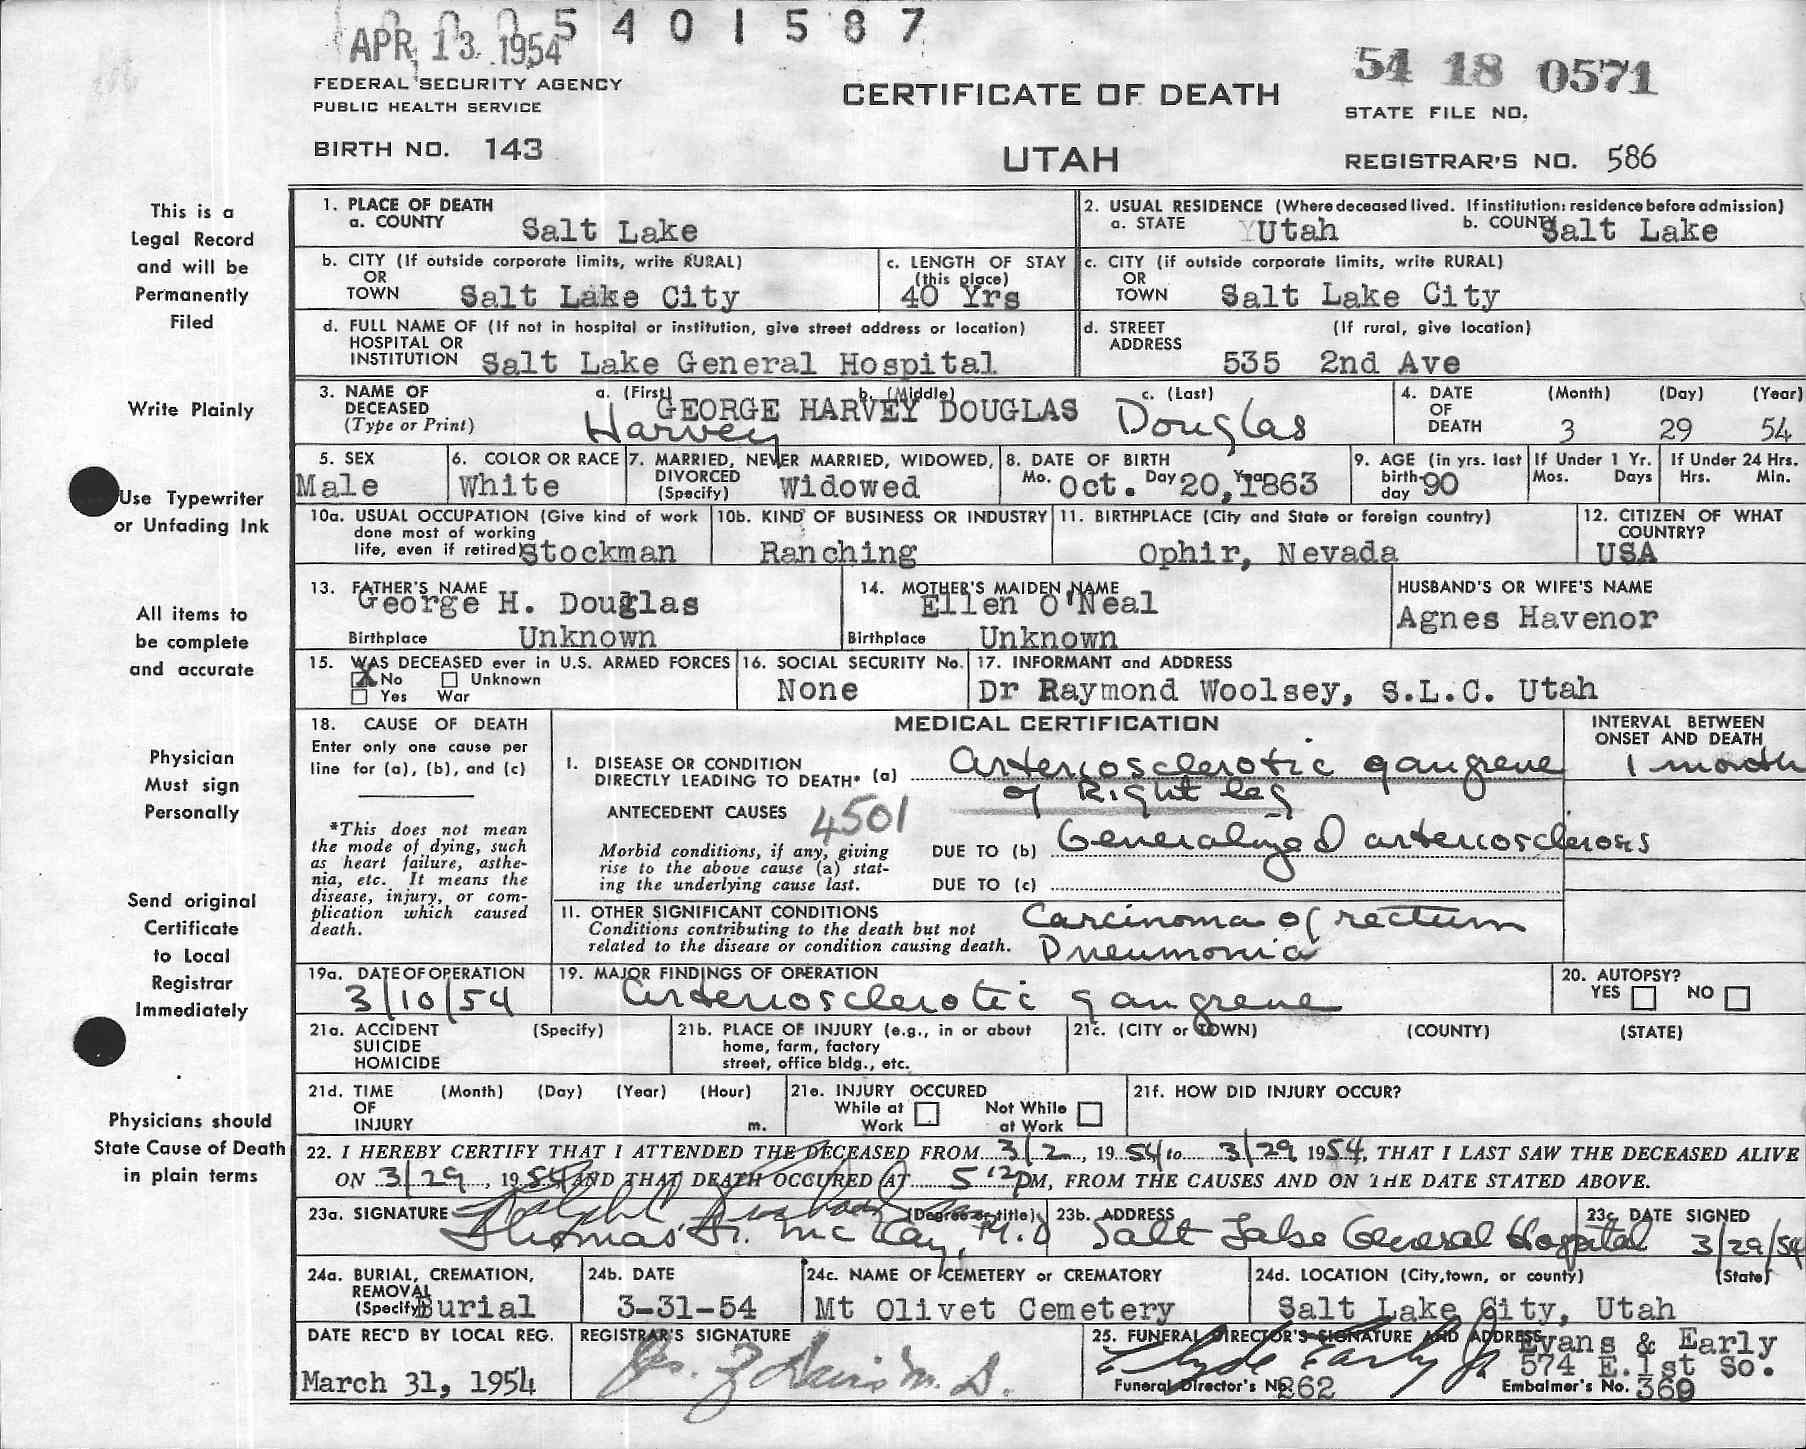 5401587
APR 13 1954
54 18 0571
FEDERAL SECURITY AGENCY
PUBLIC HEALTH SERVICE
CERTIFICATE OF DEATH
STATE FILE NO.
BIRTH NO. 143
UTAH
REGISTRAR'S NO. 586
This is a
Legal Record
and will be
Permanently
Filed
Write Plainly
Use Typewriter
or Unfading Ink
All items to
be complete
and accurate
Physician
Must sign
Personally
Send original
Certificate
to Local
Registrar
Immediately
Physicians should
State Cause of Death
in plain terms
1. PLACE OF DEATH
a. COUNTY Salt Lake
2. USUAL RESIDENCE (Where deceased lived. If institution: residence before admission)
a. STATE Utah b. COUNTY Salt Lake
b. CITY (If outside corporate limits, write RURAL)
OR
TOWN Salt Lake City
c. LENGTH OF STAY
(this place)
40 Yrs
c. CITY (if outside corporate limits, write RURAL)
OR
TOWN Salt Lake City
d. FULL NAME OF (If not in hospital or institution, give street address or location)
HOSPITAL OR
INSTITUTION Salt Lake General Hospital
d. STREET (If rural, give location)
ADDRESS
535 2nd Ave
3. NAME OF
DECEASED
(Type or Print)
a. (First) b. (Middle) c. (Last)
GEORGE HARVEY DOUGLAS
Harvey Douglas
4. DATE
OF
DEATH
(Month) (Day) (Year)
3 29 54
5. SEX
Male
6. COLOR OR RACE
White
7. MARRIED, NEVER MARRIED, WIDOWED,
DIVORCED
(Specify) Widowed
8. DATE OF BIRTH
Mo. Oct. Day 20, Yr. 1863
9. AGE (in yrs. last
birth-
day 90
If Under 1 Yr.
Mos. Days
If Under 24 Hrs.
Hrs. Min.
10a. USUAL OCCUPATION (Give kind of work
done most of working
life, even if retired) Stockman
10b. KIND OF BUSINESS OR INDUSTRY
Ranching
11. BIRTHPLACE (City and State or foreign country)
Ophir, Nevada
12. CITIZEN OF WHAT
COUNTRY?
USA
13. FATHER'S NAME
George H. Douglas
Birthplace Unknown
14. MOTHER'S MAIDEN NAME
Ellen O'Neal
Birthplace Unknown
HUSBAND'S OR WIFE'S NAME
Agnes Havenor
15. WAS DECEASED ever in U.S. ARMED FORCES
X No Unknown
Yes War
16. SOCIAL SECURITY No.
None
17. INFORMANT and ADDRESS
Dr Raymond Woolsey, S.L.C. Utah
18. CAUSE OF DEATH
Enter only one cause per
line for (a), (b), and (c)
*This does not mean
the mode of dying, such
as heart failure, asthe-
nia, etc. It means the
disease, injury, or com-
plication which caused
death.
MEDICAL CERTIFICATION
INTERVAL BETWEEN
ONSET AND DEATH
I. DISEASE OR CONDITION
DIRECTLY LEADING TO DEATH* (a) Arteriosclerotic gangrene 1 month
of Right leg
ANTECEDENT CAUSES 4501
Morbid conditions, if any, giving
rise to the above cause (a) stat-
ing the underlying cause last.
DUE TO (b) Generalized arteriosclerosis
DUE TO (c)
II. OTHER SIGNIFICANT CONDITIONS
Conditions contributing to the death but not
related to the disease or condition causing death.
Carcinoma of rectum
Pneumonia
19a. DATE OF OPERATION
3/10/54
19. MAJOR FINDINGS OF OPERATION
Arteriosclerotic gangrene
20. AUTOPSY?
YES NO
21a. ACCIDENT (Specify)
SUICIDE
HOMICIDE
21b. PLACE OF INJURY (e.g., in or about
home, farm, factory
street, office bldg., etc.
21c. (CITY or TOWN) (COUNTY) (STATE)
21d. TIME (Month) (Day) (Year) (Hour)
OF
INJURY m.
21e. INJURY OCCURED
While at Work
Not While at Work
21f. HOW DID INJURY OCCUR?
22. I HEREBY CERTIFY THAT I ATTENDED THE DECEASED FROM 3/2, 1954 to 3/29 1954, THAT I LAST SAW THE DECEASED ALIVE
ON 3/29, 1954 AND THAT DEATH OCCURED AT 5 12 PM, FROM THE CAUSES AND ON THE DATE STATED ABOVE.
23a. SIGNATURE (Degree or title)
Thomas H. McKay, M.D
23b. ADDRESS
Salt Lake General Hospital
23c. DATE SIGNED
3/29/54
24a. BURIAL, CREMATION,
REMOVAL
(Specify) Burial
24b. DATE
3-31-54
24c. NAME OF CEMETERY or CREMATORY
Mt Olivet Cemetery
24d. LOCATION (City, town, or county) (State)
Salt Lake City, Utah
DATE REC'D BY LOCAL REG.
March 31, 1954
REGISTRAR'S SIGNATURE
25. FUNERAL DIRECTOR'S SIGNATURE AND ADDRESS
Clyde Early Jr Evans & Early
574 E. 1st So.
Funeral Director's No. 262
Embalmer's No. 369